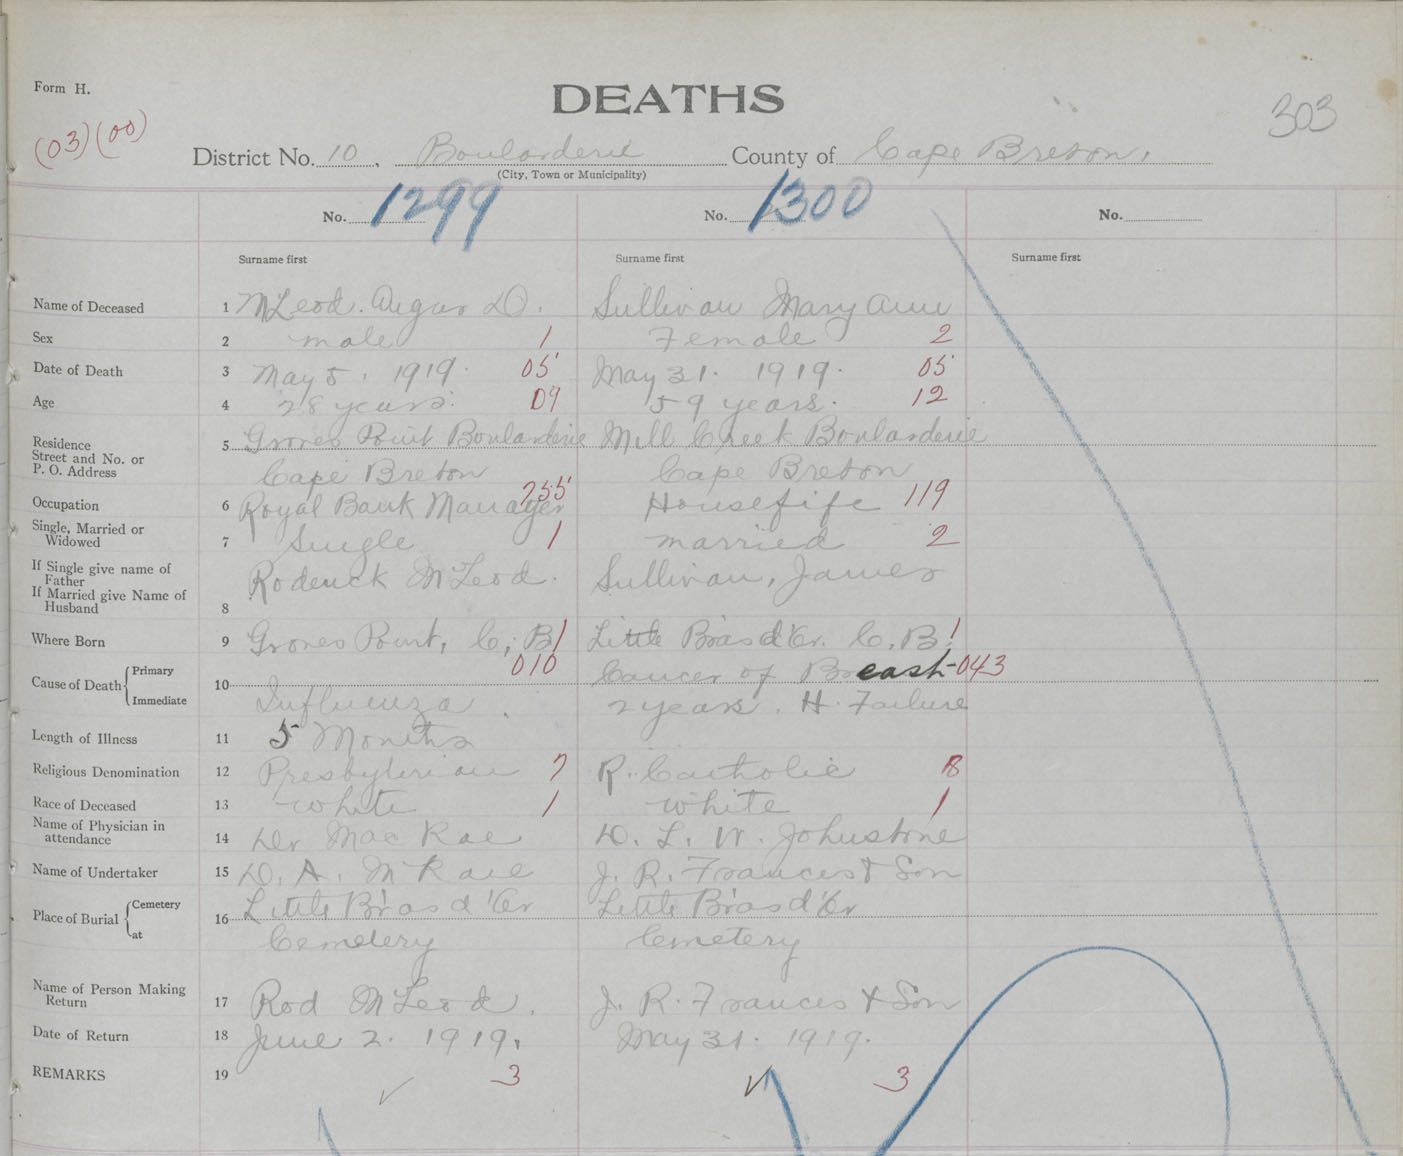 Form H.
DEATHS
303
(03) (00)
District No. 10, Boularderie County of Cape Breton.
(City, Town or Municipality)
No. 1299 No. 1300 No.
Surname first Surname first Surname first
Name of Deceased 1 McLeod. Angus D. Sullivan Mary Ann
Sex 2 male 1 Female 2
Date of Death 3 May 5, 1919. 05 May 31. 1919. 05
Age 4 28 years. 09 59 years. 12
Residence
Street and No. or
P. O. Address
5 Groves Point Boularderie Mill Creek Boularderie
Cape Breton Cape Breton
Occupation 6 Royal Bank Manager 255 Housefife 119
Single, Married or
Widowed
7 Single 1 married 2
If Single give name of
Father
If Married give Name of
Husband
8 Roderick McLeod. Sullivan, James
Where Born 9 Groves Point, C, B 1 Little Bras d'Or. C. B. 1
Cause of Death Primary 010 Cancer of Breast 043
10
Immediate Influenza 2 years. H. Failure
Length of Illness 11 5 Months
Religious Denomination 12 Presbyterian 7 R. Catholic 8
Race of Deceased 13 white 1 white 1
Name of Physician in
attendance
14 Dr Mac Rae D. L. W. Johnstone
Name of Undertaker 15 D. A. McRae J. R. Frances & Son
Place of Burial Cemetery
at
16 Little Bras d'Or Little Bras d'Or
Cemetery Cemetery
Name of Person Making
Return
17 Rod McLeod. J. R. Frances & Son
Date of Return 18 June 2. 1919. May 31. 1919.
REMARKS 19 3 3